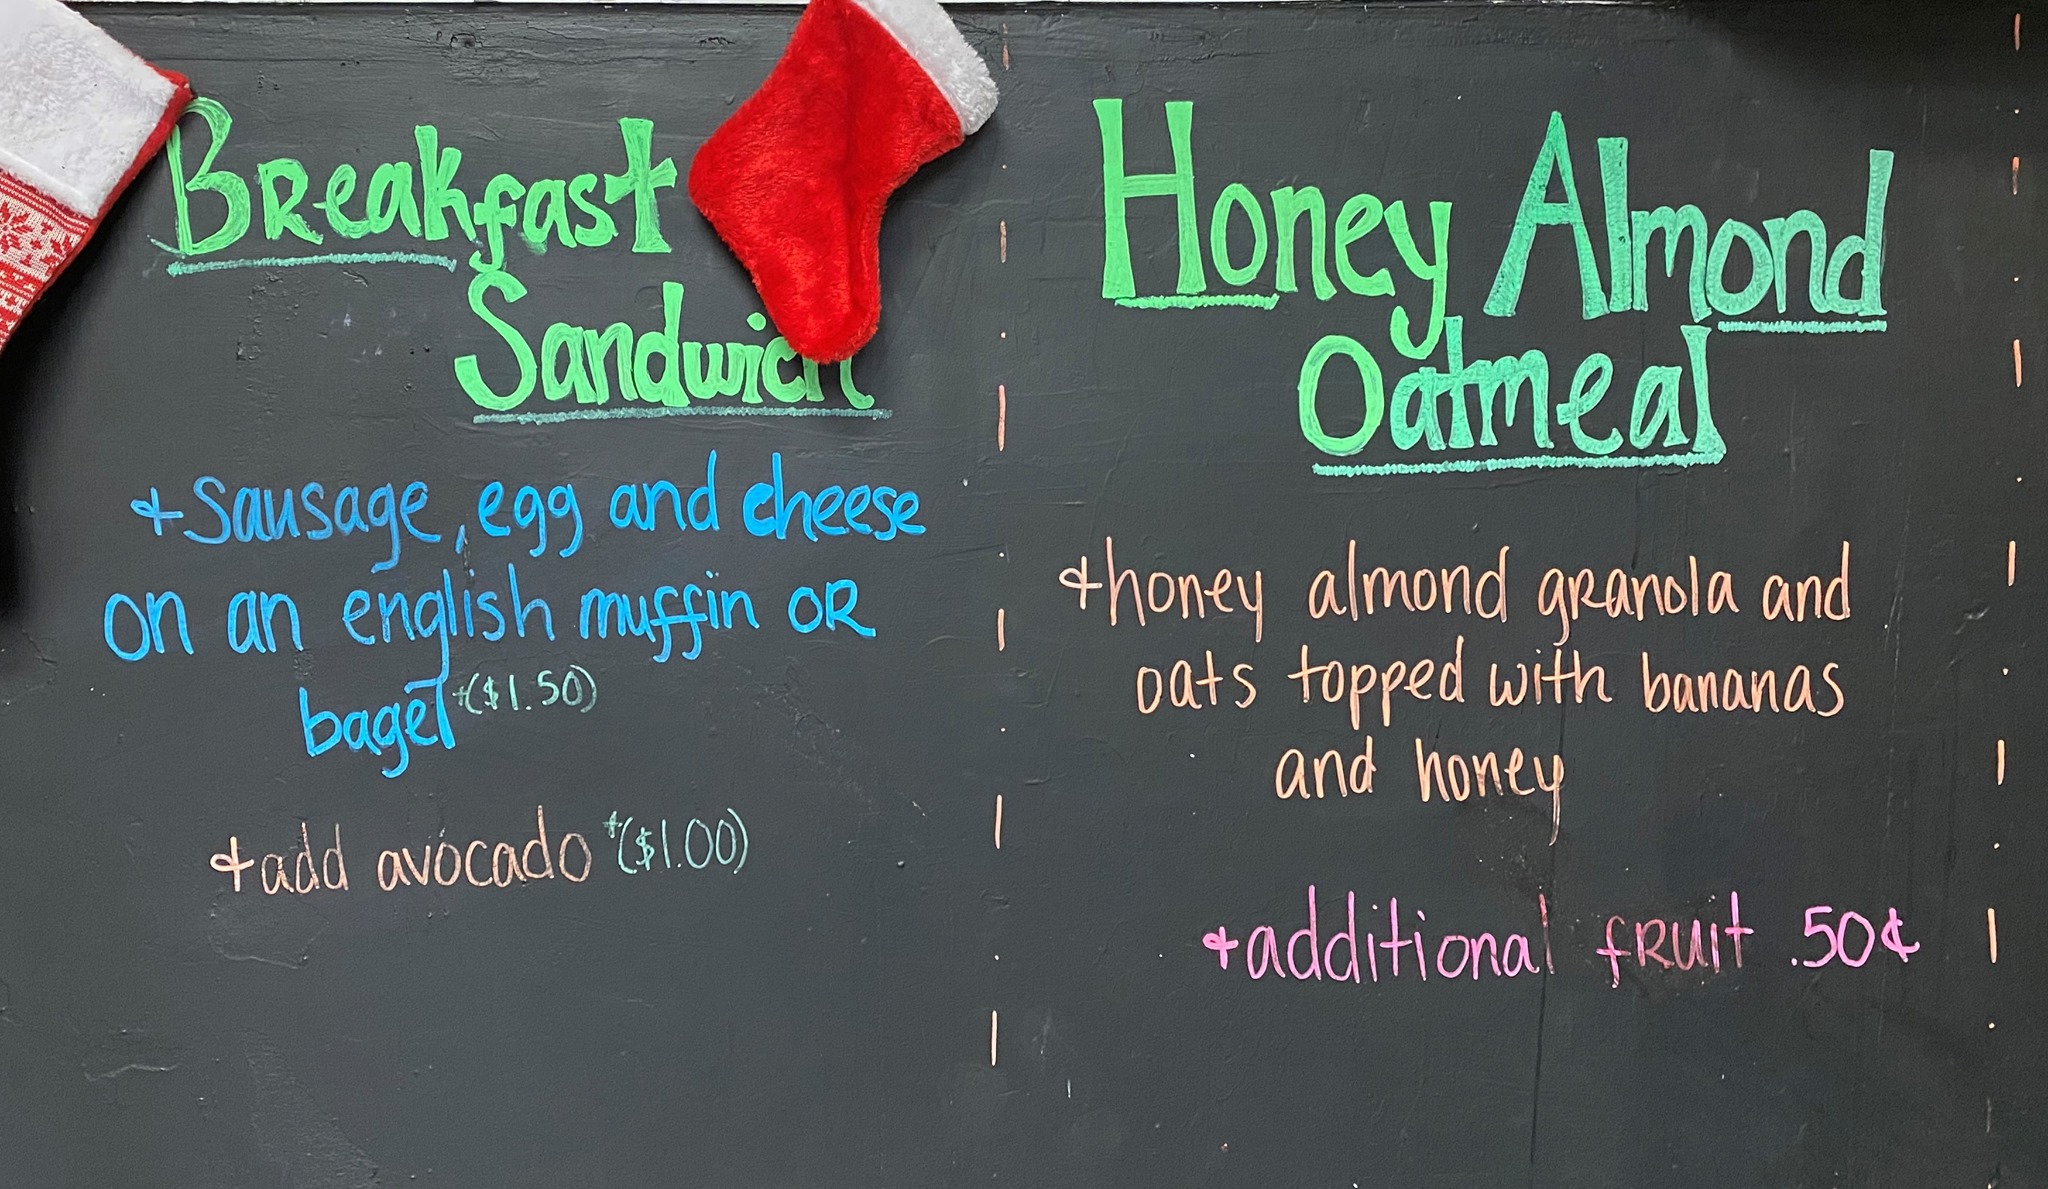 Breakfast
Sandwich
+Sausage, egg and cheese
on an english muffin OR
bagel +($1.50)
+add avocado +($1.00)
Honey Almond
Oatmeal
+honey almond granola and
oats topped with bananas
and honey
+additional fruit .50¢